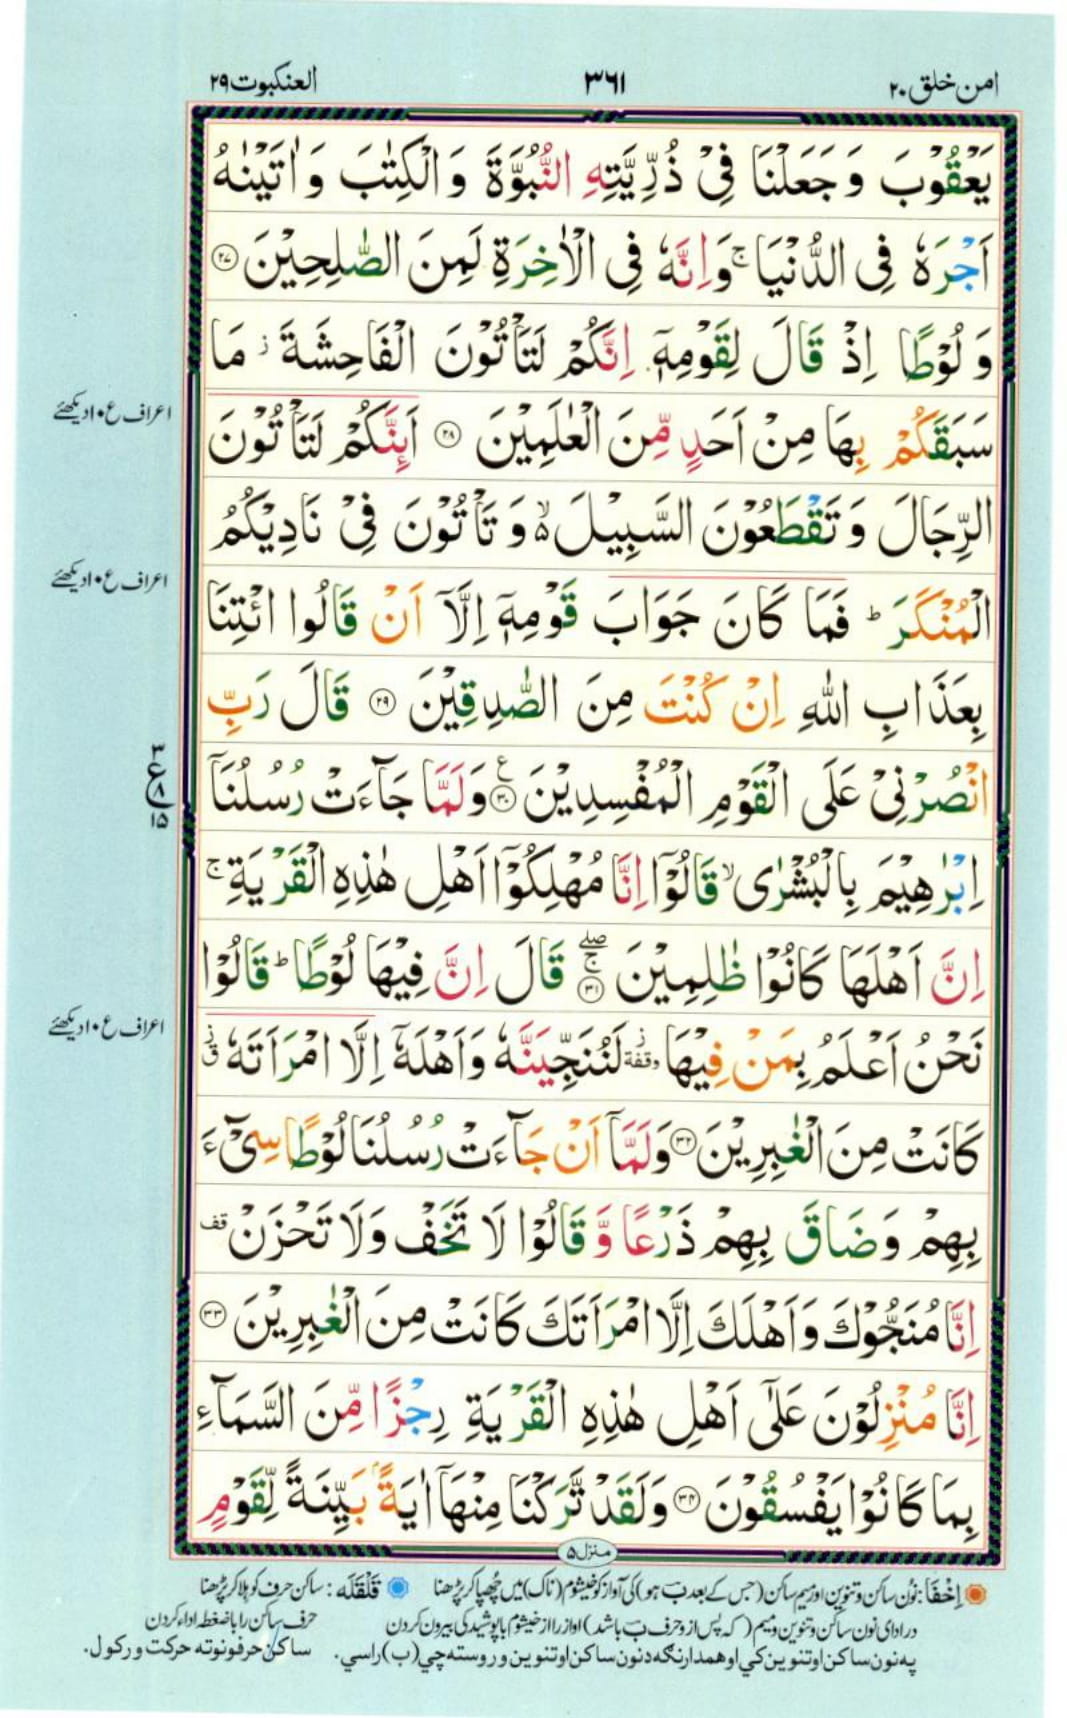 امن خلق ۲۰
۳۶۱
العنکبوت ۲۹
يَعْقُوْبَ وَ جَعَلْنَا فِيْ ذُرِّيَّتِهِ النُّبُوَّةَ وَ الْكِتٰبَ وَ اٰتَيْنٰهُ
اَجْرَهٗ فِي الدُّنْيَا ۚ وَ اِنَّهٗ فِي الْاٰخِرَةِ لَمِنَ الصّٰلِحِيْنَ ۲۷
وَ لُوْطًا اِذْ قَالَ لِقَوْمِهٖۤ اِنَّكُمْ لَتَاْتُوْنَ الْفَاحِشَةَ ز مَا
سَبَقَكُمْ بِهَا مِنْ اَحَدٍ مِّنَ الْعٰلَمِيْنَ ۲۸ اَئِنَّكُمْ لَتَاْتُوْنَ
اعراف ع ۱۰ دیکھئے
الرِّجَالَ وَ تَقْطَعُوْنَ السَّبِيْلَ ۵ۙ وَ تَاْتُوْنَ فِيْ نَادِيْكُمُ
الْمُنْكَرَ ؕ فَمَا كَانَ جَوَابَ قَوْمِهٖۤ اِلَّاۤ اَنْ قَالُوا ائْتِنَا
اعراف ع ۱۰ دیکھئے
بِعَذَابِ اللّٰهِ اِنْ كُنْتَ مِنَ الصّٰدِقِيْنَ ۲۹ قَالَ رَبِّ
انْصُرْنِيْ عَلَى الْقَوْمِ الْمُفْسِدِيْنَ ۳۰ ع وَ لَمَّا جَآءَتْ رُسُلُنَاۤ
۳
ع ۸
۱۵
اِبْرٰهِيْمَ بِالْبُشْرٰى ۙ قَالُوْۤا اِنَّا مُهْلِكُوْۤا اَهْلِ هٰذِهِ الْقَرْيَةِ ۚ
اِنَّ اَهْلَهَا كَانُوْا ظٰلِمِيْنَ ۳۱ صلے ج قَالَ اِنَّ فِيْهَا لُوْطًا ؕ قَالُوْا
نَحْنُ اَعْلَمُ بِمَنْ فِيْهَا وقفة ز لَنُنَجِّيَنَّهٗ وَ اَهْلَهٗۤ اِلَّا امْرَاَتَهٗ ق ز
اعراف ع ۱۰ دیکھئے
كَانَتْ مِنَ الْغٰبِرِيْنَ ۳۲ وَ لَمَّاۤ اَنْ جَآءَتْ رُسُلُنَا لُوْطًا سِيْٓءَ
بِهِمْ وَ ضَاقَ بِهِمْ ذَرْعًا وَّ قَالُوْا لَا تَخَفْ وَ لَا تَحْزَنْ قف
اِنَّا مُنَجُّوْكَ وَ اَهْلَكَ اِلَّا امْرَاَتَكَ كَانَتْ مِنَ الْغٰبِرِيْنَ ۳۳
اِنَّا مُنْزِلُوْنَ عَلٰۤى اَهْلِ هٰذِهِ الْقَرْيَةِ رِجْزًا مِّنَ السَّمَآءِ
بِمَا كَانُوْا يَفْسُقُوْنَ ۳۴ وَ لَقَدْ تَّرَكْنَا مِنْهَاۤ اٰيَةًۢ بَيِّنَةً لِّقَوْمٍ
منزل ۵
اِخْفَا: نون ساکن و تنوین اور میم ساکن (جس کے بعد ب ہو) کی آواز کو خیشوم (ناک) میں چُھپا کر پڑھنا قَلْقَلَه: ساکن حرف کو ہلا کر پڑھنا
در ادای نون ساکن و تنوین و میم (که پس از و حرف ب باشد) اواز را از خیشوم با پوشیدگی بیرون کردن حرف ساکن را با ضغط اداء کردن
په نون ساکن او تنوین کي او همدارنګه د نون ساکن او تنوین وروسته چي (ب) راسي. ساکن حرفونو ته حرکت ورکول.